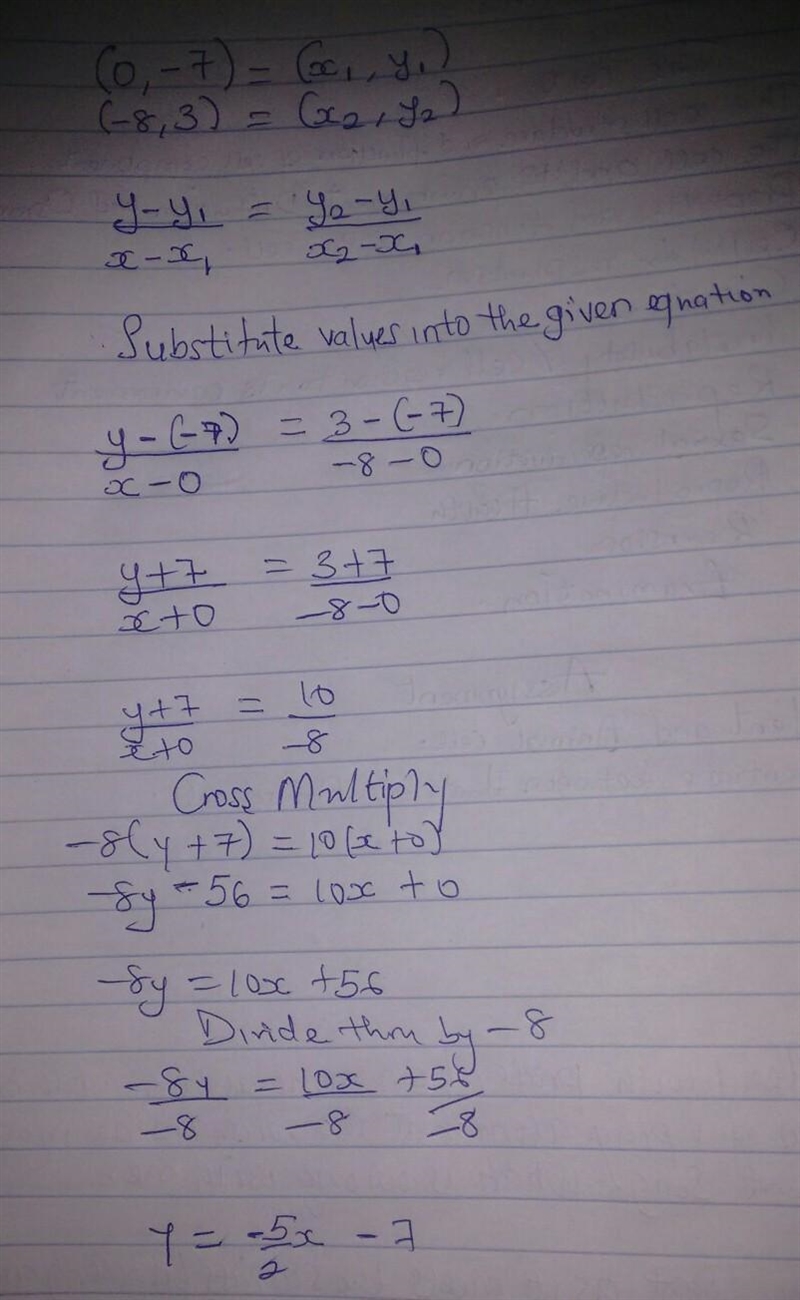 (0,-7) = (x₁, y₁)
(-8,3) = (x₂, y₂)
y-y₁/x-x₁ = y₂-y₁/x₂-x₁
Substitute values into the given equation
y-(-7)/x-0 = 3-(-7)/-8-0
y+7/x+0 = 3+7/-8-0
y+7/x+0 = 10/-8
Cross Multiply
-8(y+7) = 10(x+0)
-8y-56 = 10x+0
-8y = 10x+56
Divide thru by -8
-8y/-8 = 10x/-8 +56/-8
y = -5x/2 - 7